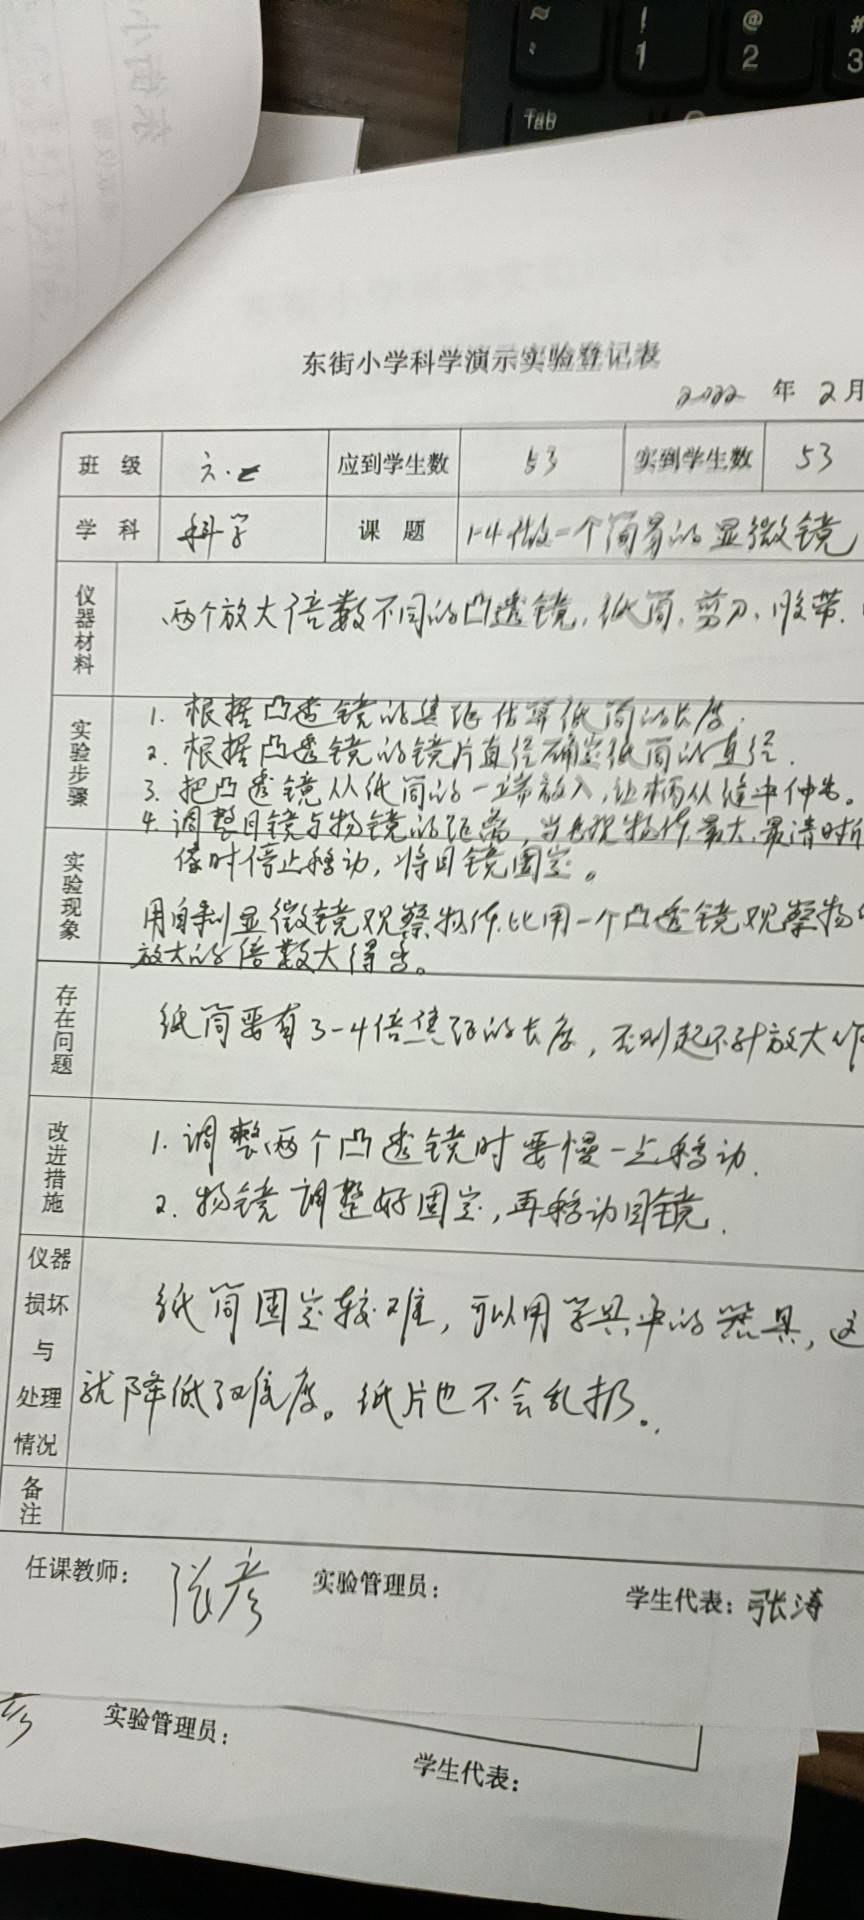 ~ ! @ #
` 1 2 3
Tab
东街小学科学演示实验登记表
2022 年 2 月
班 级 六.二 应到学生数 53 实到学生数 53
学 科 科学 课 题 1-4做一个简易的显微镜
仪器材料 两个放大倍数不同的凸透镜,纸筒,剪刀、胶带.
实验步骤 1. 根据凸透镜的焦距估算纸筒的长度.
2. 根据凸透镜的镜片直径确定纸筒的直径.
3. 把凸透镜从纸筒的一端放入,让柄从缝中伸出。
4. 调整目镜与物镜的距离,当出现物体最大、最清晰
像时停止移动,将目镜固定。
实验现象 用自制显微镜观察物体,比用一个凸透镜观察物
放大的倍数大得多。
存在问题 纸筒要有3-4倍焦距的长度,否则起不到放大作
改进措施 1. 调整两个凸透镜时要慢一点移动.
2. 物镜调整好固定,再移动目镜.
仪器损坏与处理情况 纸筒固定较难,可以用学具中的器具,这
就降低了难度。纸片也不会乱扔。
备注
任课教师: 张彦 实验管理员: 学生代表: 张涛
实验管理员:
学生代表: